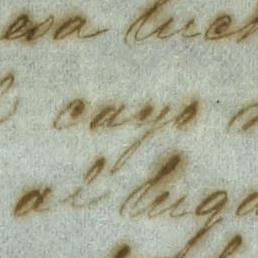 esa luch
cayo
al luga